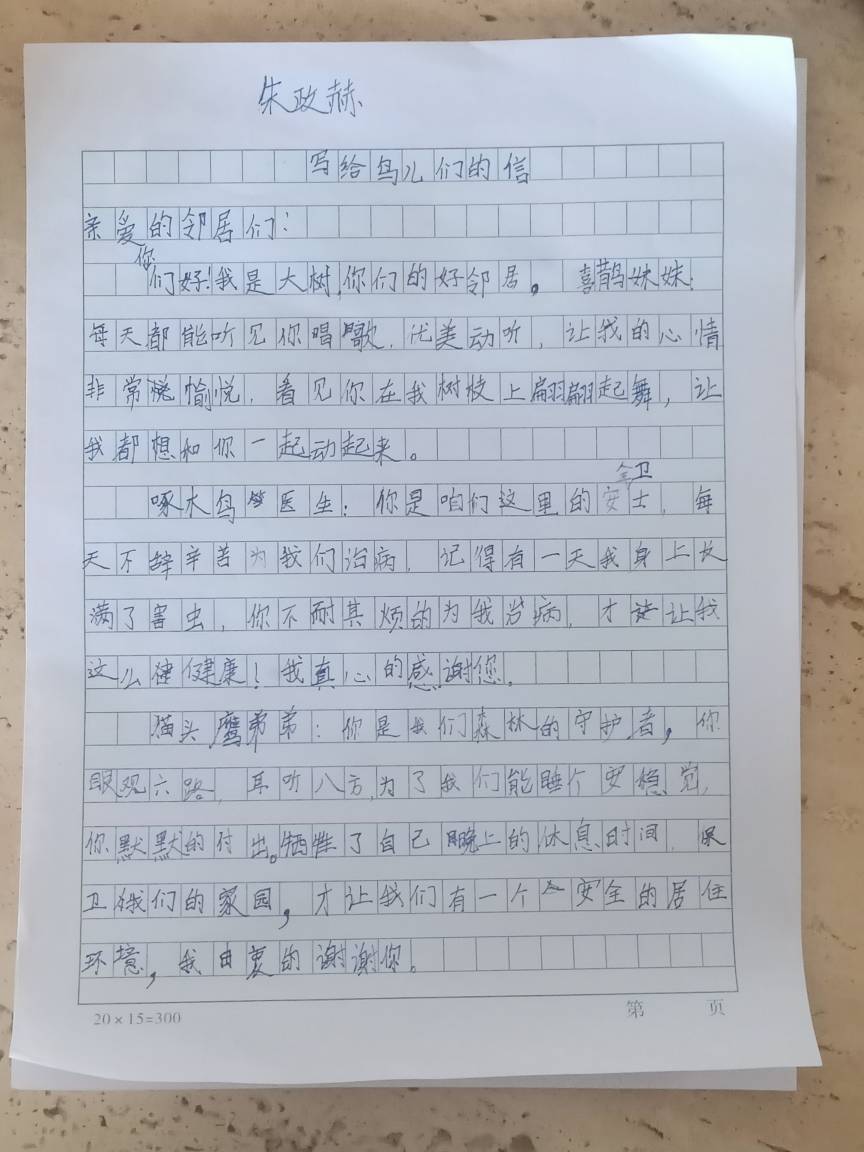 朱政赫
写给鸟儿们的信
亲爱的邻居们：
你们好！我是大树，你们的好邻居。喜鹊妹妹：
每天都能听见你唱歌，优美动听，让我的心情
非常愉悦，看见你在我树枝上翩翩起舞，让
我都想和你一起动起来。
啄木鸟医生：你是咱们这里的安全卫士，每
天不辞辛苦为我们治病，记得有一天我身上长
满了害虫，你不耐其烦的为我治病，才让我
这么健康！我真心的感谢您。
猫头鹰弟弟：你是我们森林的守护者，你
眼观六路，耳听八方，为了我们能睡个安稳觉，
你默默的付出。牺牲了自己晚上的休息时间，保
卫我们的家园，才让我们有一个安全的居住
环境，我由衷的谢谢你。
20×15=300
第 页